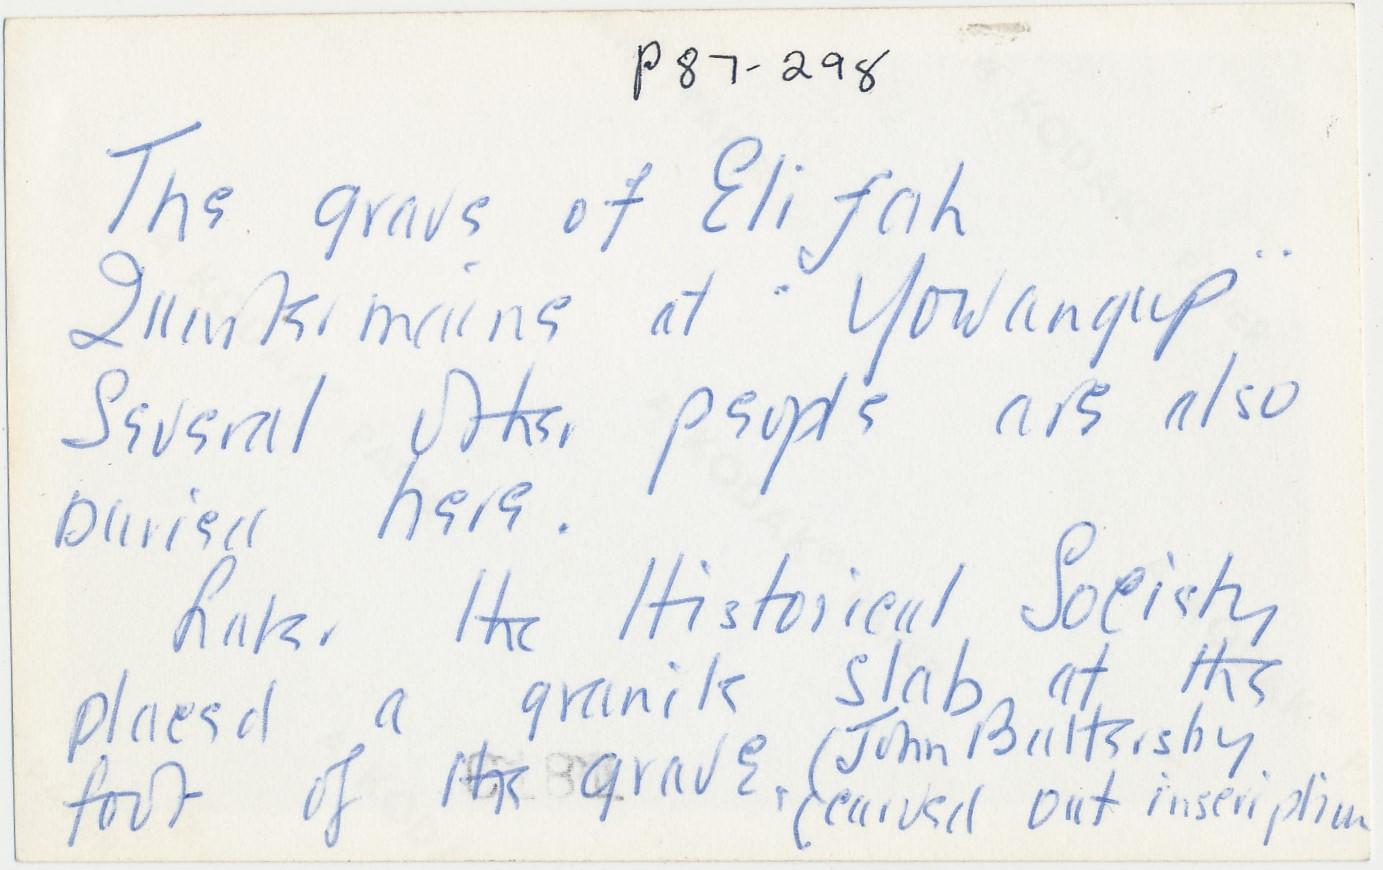 P87-298
The grave of Elijah
Quartermaine at "Yowangup"
Several other people are also
buried here.
Later the Historical Society
placed a granite slab at the
foot of the grave. (John Battersby
(carved out inscription